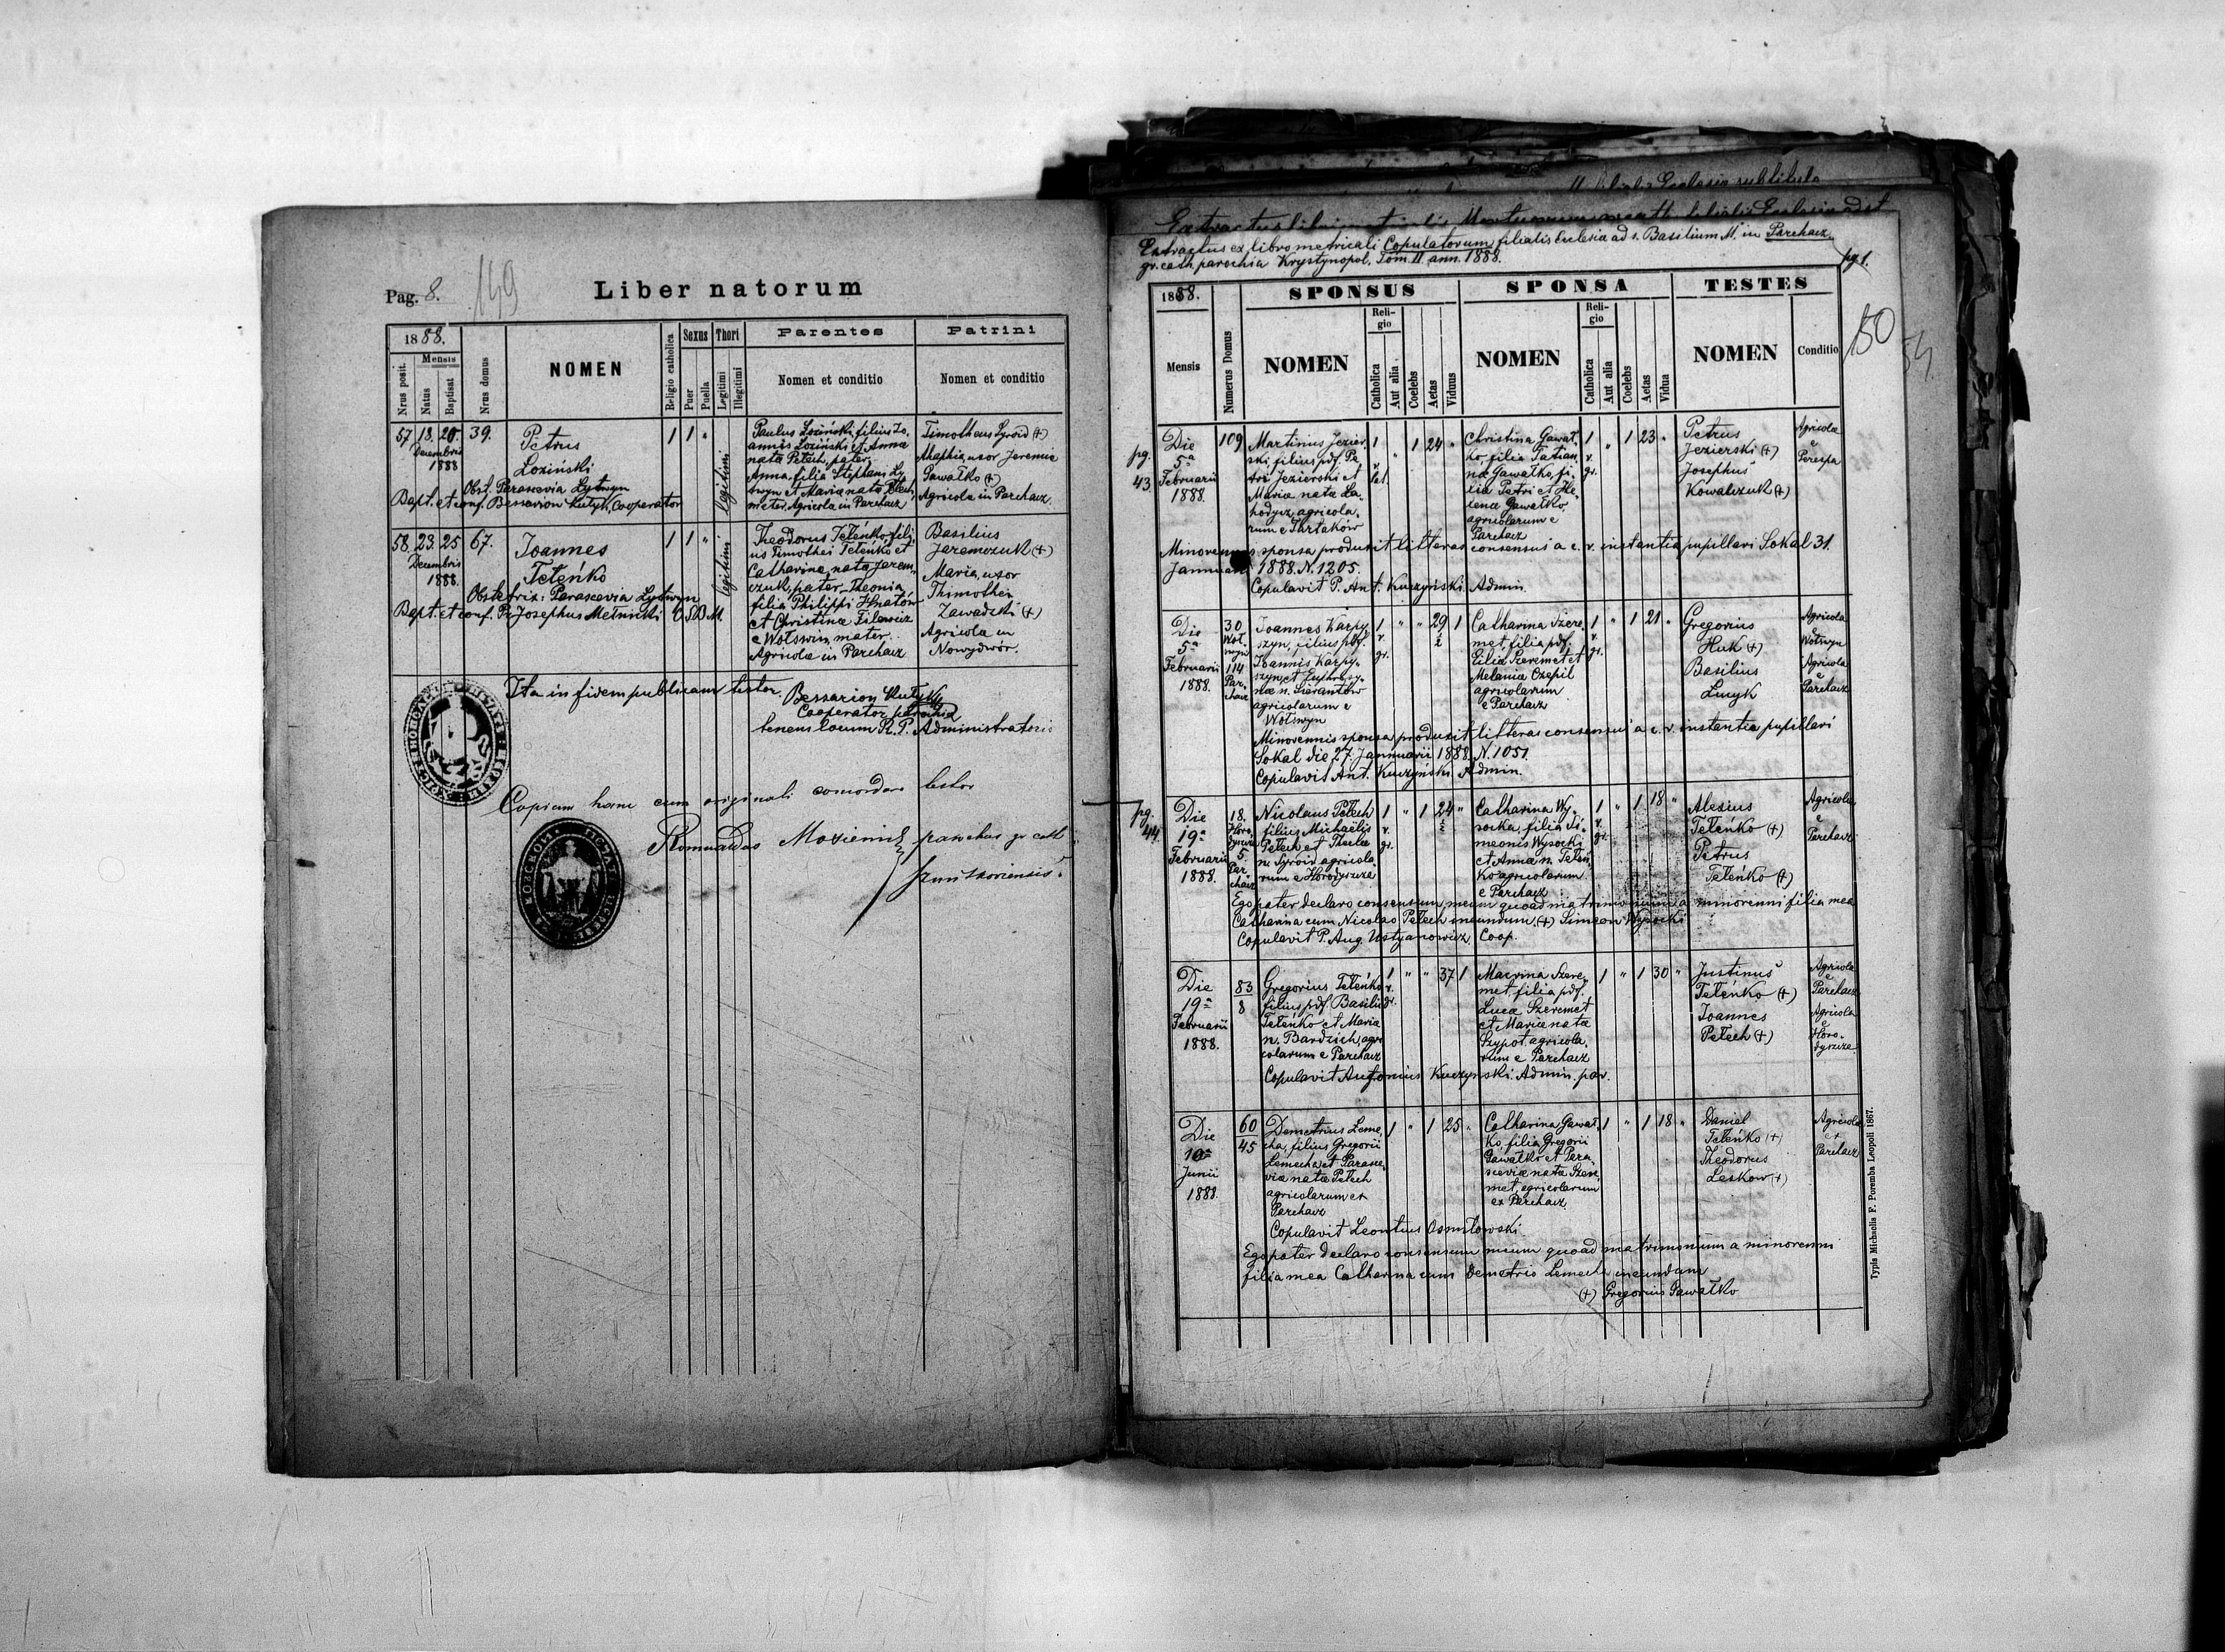 Pag. 8.
149
Liber natorum
1888.
Nrus posit.
Mensis
Natus
Baptisat
Nrus domus
NOMEN
Religio catholica
Sexus
Puer
Puella
Thori
Legitimi
Illegitimi
Parentes
Nomen et conditio
Patrini
Nomen et conditio
57 18. 20. 39.
Decembris
1888
Petrus
Loziński
1 1 "
legitimi
Paulus Loziński, filius Jo-
annis Loziński et Anna
nata Petech, pater.
Anna filia Stephani Ly-
twyn et Maria nata Petech,
mater, Agricola in Parchacz
Timotheus Syroid (+)
Ahaphia, uxor Jeremie
Gawałko (+)
Agricola in Parchacz.
Obst. Parascevia Lytwyn
Bapt. et conf. Bessarion Kutyk, Cooperator
58. 23. 25 67.
Decembris
1888.
Joannes
Teteńko
1 1 "
legitimi
Theodorus Teteńko, fili-
us Timothei Teteńko et
Catharina nata Jarem-
czuk, pater, Theonia
filia Philippi Hnatów
et Christina Filewicz
e Wołswin, mater.
Agricola in Parchacz
Basilius
Jaremczuk (+)
Maria, uxor
Thimothei
Zawadzki (+)
Agricola in
Nowydwór.
Obstetrix: Parascevia Lytwyn
Bapt. et conf. Pr. Josephus Melnicki O.S.B.M.
Ita in fidem publicam testor. Bessarion Kutyk
Cooperator parochia
tenens locum R. P. Administratoris
Copiam hanc cum originali concordare testor
Romualdus parochus gr. cath.
Extractus ex libro metricali Copulatorum filialis Ecclesia ad s. Basilium M. in Parchacz,
gr. cath. parochia Krystynopol. Tom. II ann. 1888.
pg 1.
150
54.
1888.
Mensis
Numerus Domus
SPONSUS
NOMEN
Religio
Catholica
Aut alia
Coelebs
Aetas
Viduus
SPONSA
NOMEN
Religio
Catholica
Aut alia
Coelebs
Aetas
Vidua
TESTES
NOMEN
Conditio
pg.
43.
Die
5ª
Februarii
1888.
109
Martinus Jezier-
ski, filius pdf. Pe-
tri Jezierski et
Maria nata La-
hodycz, agricola-
rum e Thrtaków
1
r.
lat.
" 1 24 "
Christina Gawał-
ko, filia Tatian-
na Gawałko, fi-
lia Petri et He-
lena Gawałko,
agricolarum e
Parchacz
1
r.
gr.
" 1 23 "
Petrus
Jezierski (+)
Josephus
Kowalczuk (+)
Agricola
e
Perespa
Minorennis sponsa produxit litteras consensus a c. r. instantia pupillari Sokal 31.
Januarii 1888. N. 1205.
Copulavit P. Ant. Kuczyński. Admin.
Die
5ª
Februarii
1888.
30
Wołswyn
114
Parchacz
Joannes Karpy-
szyn, filius pdf.
Joannis Karpy-
szyn et Euphrosy-
na n. Sierantów
agricolarum e
Wołswyn
1
r.
gr.
" " 29 1
Catharina Szere-
met, filia pdf.
Eilia Szeremet et
Melania Czepil
agricolarum
e Parchacz
1
r.
gr.
" 1 21 "
Gregorius
Huk (+)
Basilius
Lucyk
Agricola
e
Wołswyn
Agricola
e
Parchacz
Minorennis sponsa produxit litteras consensus a c. r. instantia pupillari
Sokal die 27 Januarii 1888. N. 1051.
Copulavit Ant. Kuczyński. Admin.
pg.
44.
Die
19ª
Februarii
1888.
18.
Horodyszcze
5.
Parchacz
Nicolaus Petech
filius Michaëlis
Petech et Thecla
n. Syroid agricola-
rum e Horodyszcze
1
r.
gr.
" 1 24 "
Catharina Wy-
socka, filia Si-
meonis Wysocki
et Anna n. Teteń-
ko agricolarum
e Parchacz
1
r.
gr.
" 1 18 "
Alexius
Teteńko (+)
Petrus
Teteńko (+)
Agricola
e
Parchacz
Ego pater declaro consensum meum quoad matrimonium a minorenni filia mea
Catharina cum Nicolao Petech ineundum. (+) Simeon Wysocki
Copulavit P. Aug. Ustyanowicz, Coop.
Die
19ª
Februarii
1888.
83
8
Gregorius Teteńko
filius pdf. Basilii
Teteńko et Maria
n. Bardzich, agri-
colarum e Parchacz
1
r.
gr.
" " 37 1
Macrina Szere-
met, filia pdf.
Luca Szeremet
et Maria nata
Szypot, agricola-
rum e Parchacz
1 " 1 30 "
Justinus
Teteńko (+)
Joannes
Petech (+)
Agricola
e
Parchacz
Agricola
e
Horo-
dyszcze
Copulavit Antonius Kuczynski. Admin. par.
Die
10ª
Junii
1888.
60
45
Demetrius Leme-
cha, filius Gregorii
Lemecha et Parasce-
via nata Petech
agricolarum ex
Parchacz
1 " 1 25 "
Catharina Gawał-
ko, filia Gregorii
Gawałko et Para-
scevia nata Szere-
met, agricolarum
ex Parchacz,
1 " 1 18 "
Daniel
Teteńko (+)
Theodorus
Leskow (+)
Agricola
ex
Parchacz
Copulavit Leontius Osmiłowski
Ego pater declaro consensum meum quoad matrimonium a minorenni
filia mea Catharina cum Demetrio Lemecha ineundum
(+) Gregorius Gawałko
Typis Michaelis F. Poremba Leopoli 1867.